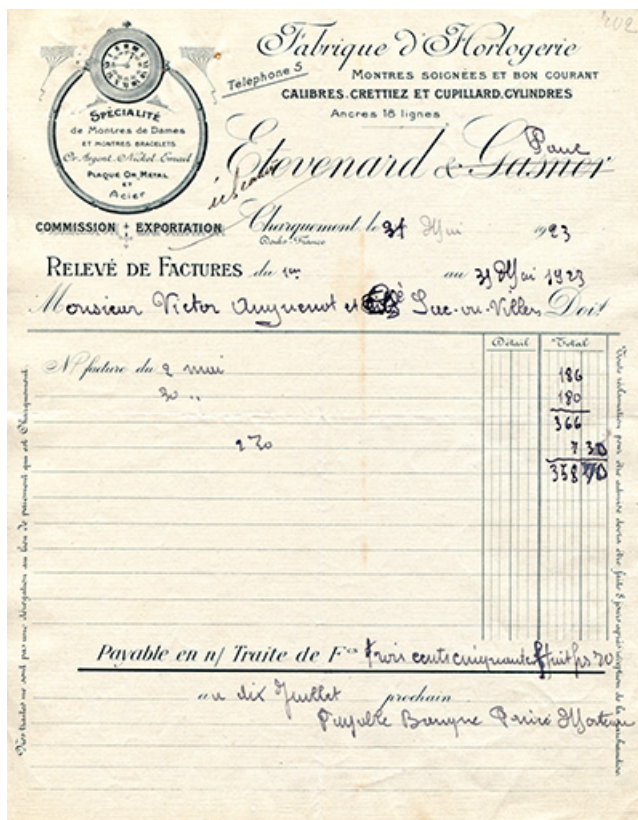 202
Fabrique d'Horlogerie
Téléphone 5
MONTRES SOIGNÉES ET BON COURANT
CALIBRES. CRETTIEZ ET CUPILLARD. CYLINDRES
Ancres 18 lignes
SPÉCIALITÉ
de Montres de Dames
ET MONTRES BRACELETS
Or, Argent, Nickel, Email
PLAQUÉ OR, METAL
ET
Acier
Paul
Etevenard & Gasner
COMMISSION EXPORTATION
Charquemont le 31 Mai 1923
Doubs-France
RELEVÉ DE FACTURES du 1er au 31 Mai 1923
Monsieur Victor et Luc-ou-Villers Doit
Détail Total
N/ facture du 2 mai 186
30 " 180
366
2 % 7 30
358 70
Payable en n/ Traite de Fcs trois cent cinquante huit frs 70
au dix Juillet prochain
Payable Banque Privée Morteau
Nos traites ne sont pas une dérogation au lieu de paiement qui est Charquemont.
Toute réclamation pour être admise devra être faite 8 jours après réception de la marchandise